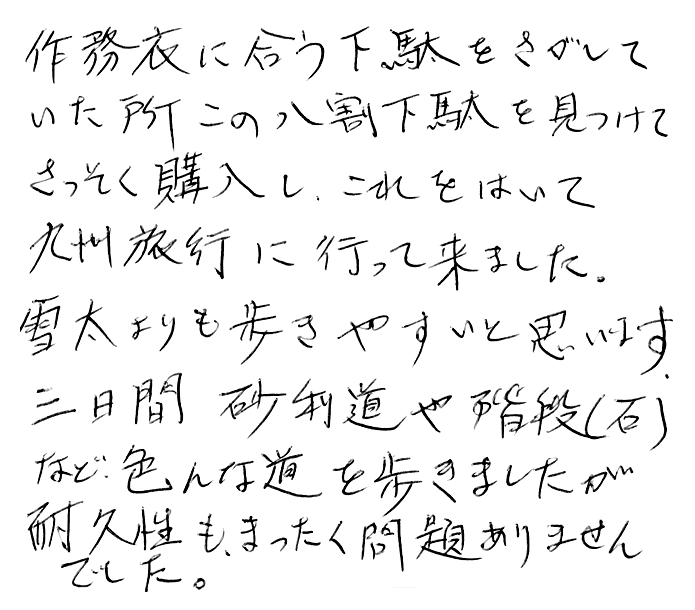 作務衣に合う下駄をさがして
いた所この八割下駄を見つけて
さっそく購入し、これをはいて
九州旅行に行って来ました。
雪太よりも歩きやすいと思います。
三日間 砂利道や階段(石)
など、色んな道を歩きましたが
耐久性も、まったく問題ありません
でした。